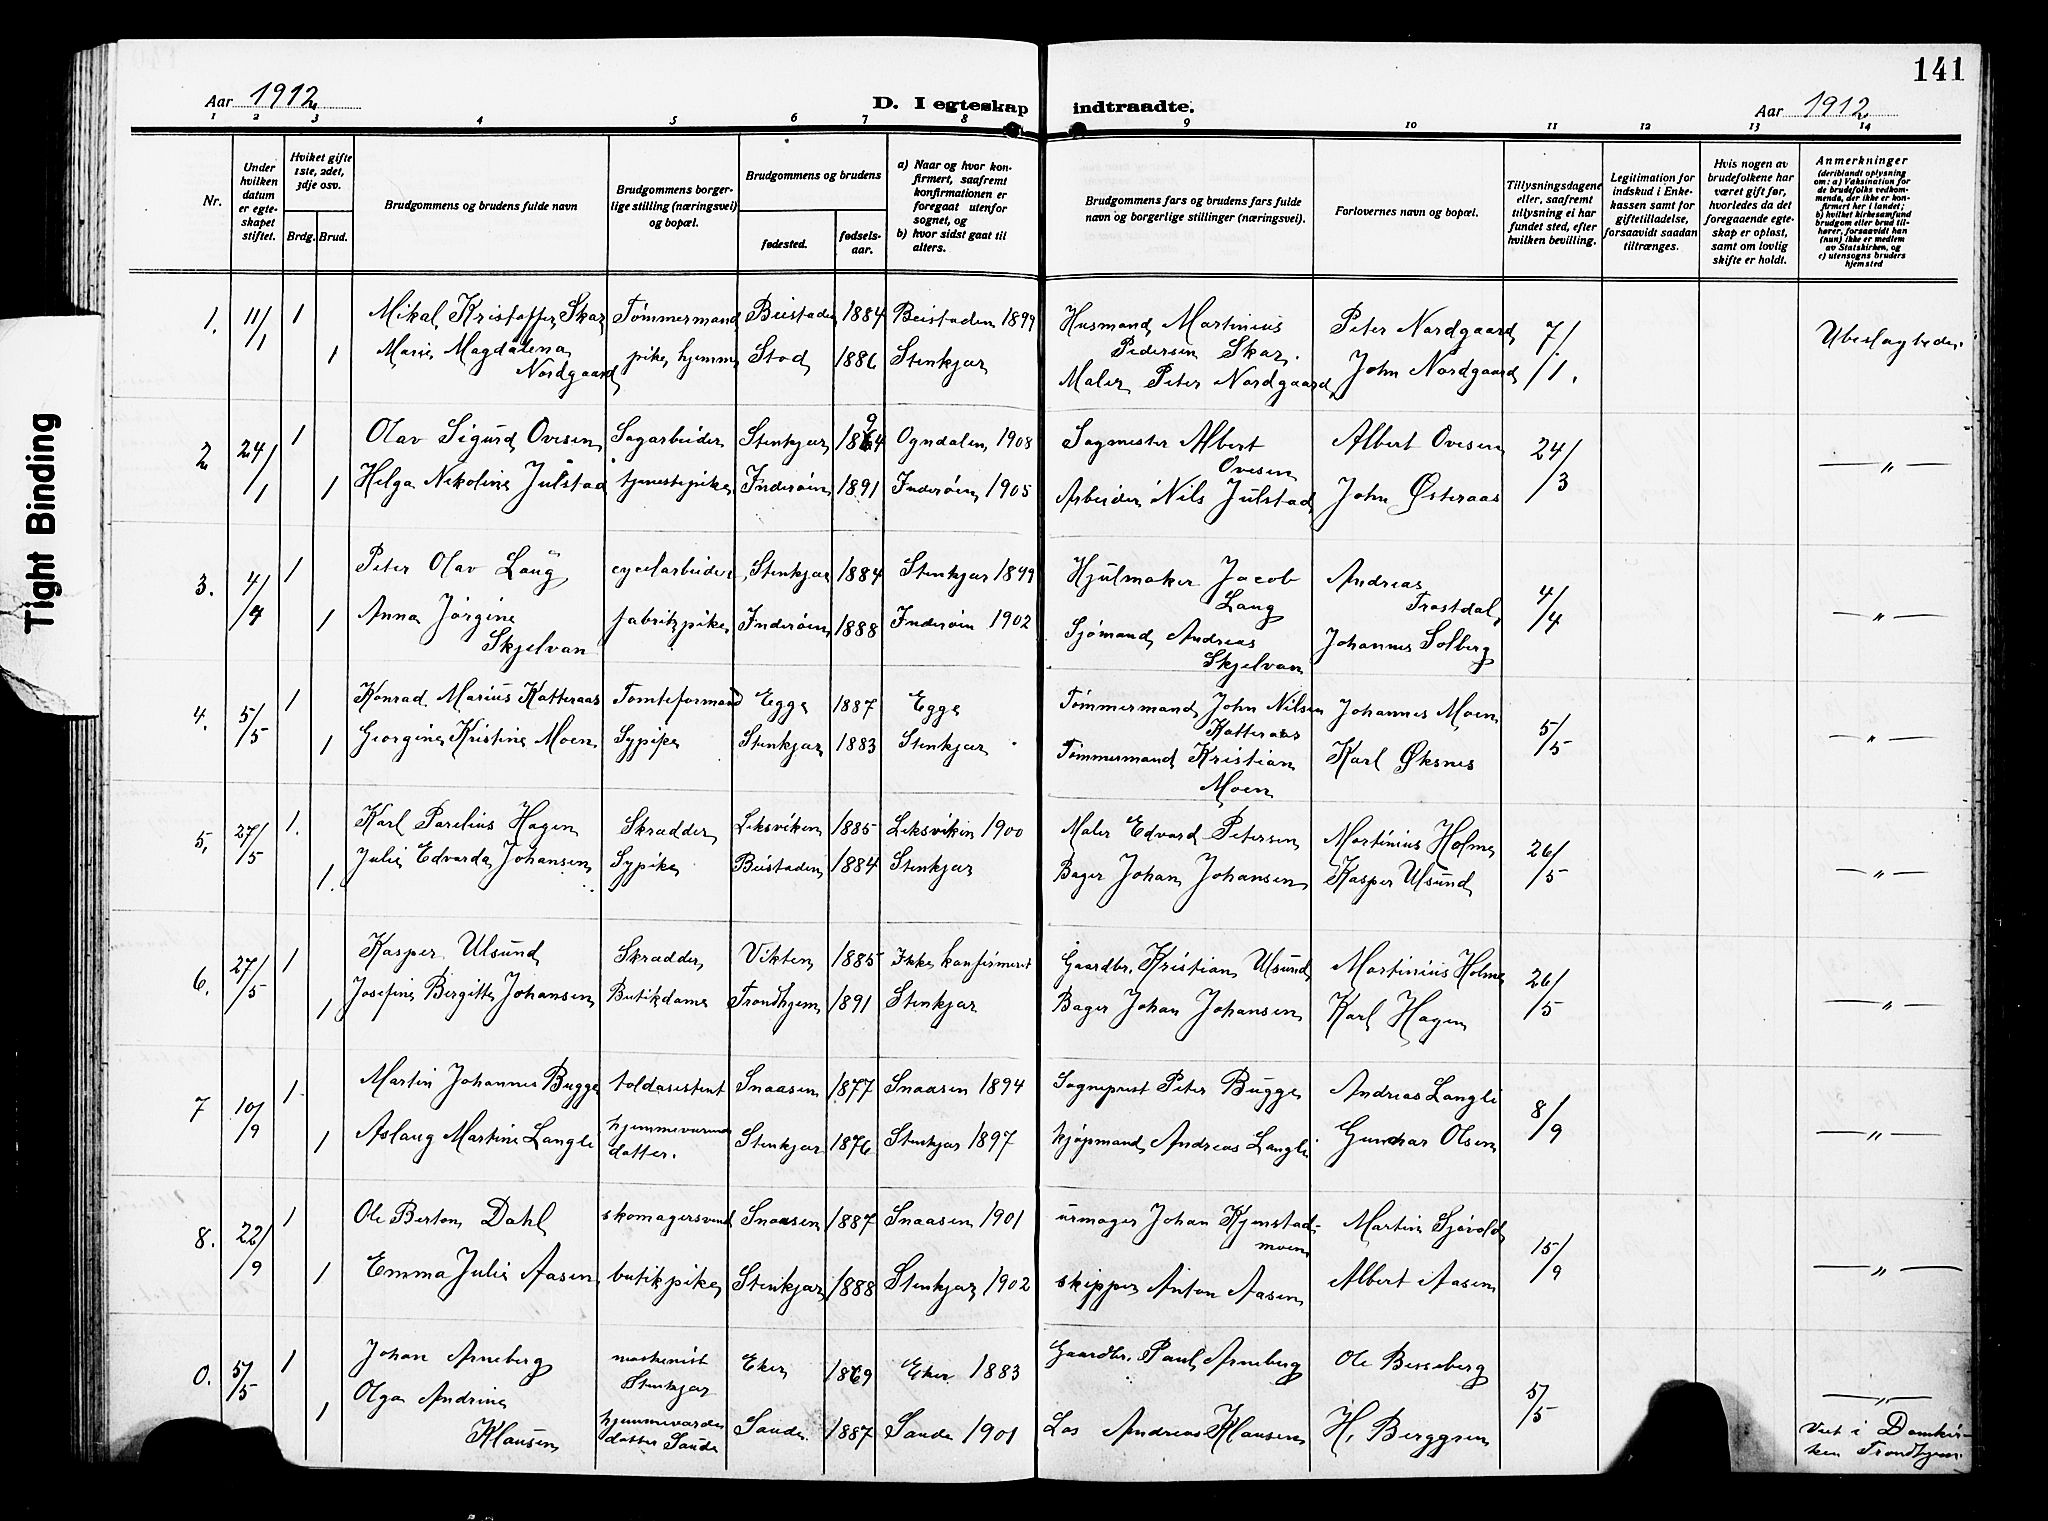 141
Aar 1912
D. I egteskap indtraadte.
Aar 1912
1 2 3 4 5 6 7 8 9 10 11 12 13 14
Nr.
Under hvilken datum er egteskapet stiftet.
Hvilket gifte 1ste, 2det, 3dje osv.
Brdg. Brud.
Brudgommens og brudens fulde navn
Brudgommens borgerlige stilling (næringsvei) og bopæl.
Brudgommens og brudens
fødested. fødselsaar.
a) Naar og hvor konfirmert, saafremt konfirmationen er foregaat utenfor sognet, og
b) hvor sidst gaat til alters.
Brudgommens fars og brudens fars fulde navn og borgerlige stillinger (næringsvei).
Forlovernes navn og bopæl.
Tillysningsdagene eller, saafremt tillysning ei har fundet sted, efter hvilken bevilling.
Legitimation for indskud i Enkekassen samt for giftetilladelse, forsaavidt saadan tiltrænges.
Hvis nogen av brudefolkene har været gift før, hvorledes da det foregaaende egteskap er opløst, samt om lovlig skifte er holdt.
Anmerkninger (deriblandt oplysning om: a) Vaksination for de brudefolks vedkommende, der ikke er konfirmert her i landet; b) hvilket kirkesamfund brudgom eller brud tilhører, forsaavidt han (hun) ikke er medlem av Statskirken, og c) utensogns bruders hjemsted
1. 11/1 1 Mikal Kristoffer Skar Tømmermand Beistaden 1884 Beistaden 1899 Husmand Martinius Pedersen Skar. Peter Nordgaard 7/1. Ubeslægtede
1 Marie Magdalena Nordgaard pike, hjemme Stod 1886 Stenkjær Maler Peter Nordgaard John Nordgaard
2 24/1 1 Olav Sigurd Ovesen Sagarbeider Stenkjær 1894 Ogndalen 1908 Sagmester Albert Ovesen Albert Ovesen 24/3 — " —
1 Helga Nikoline Julstad tjenestepike Inderøen 1891 Inderøen 1905 Arbeider Nils Julstad John Østeraas
3. 4/4 1 Peter Olav Lang cyclarbeider Stenkjær 1884 Stenkjær 1899 Hjulmaker Jacob Lang Andreas Trostdal 4/4 — " —
1 Anna Jørgine Skjelvan fabrikpike Inderøen 1888 Inderøen 1902 Sjømand Andreas Skjelvan Johannes Solberg
4. 5/5 1 Konrad Marius Katteraas Tomteformand Egge 1887 Egge Tømmermand John Nilsen Katteraas Johannes Moen 5/5 — " —
1 Georgine Kristine Moen Sypike Stenkjær 1883 Stenkjær Tømmermand Kristian Moen Karl Øksnes
5. 27/5 1. Karl Parelius Hagen Skrædder Leksviken 1885 Leksviken 1900 Maler Edvard Petersen Martinius Holme 26/5 — " —
1. Julie Edvarda Johansen Sypike Beistaden 1884 Stenkjær Bager Johan Johansen Kasper Ulsund
6. 27/5 1 Kasper Ulsund Skrædder Vikten 1885 Ikke konfirmeret Gaardbr. Kristian Ulsund Martinius Holme 26/5 — " —
1 Josefine Bergitte Johansen Butikdame Trondhjem 1891 Stenkjær Bager Johan Johansen Karl Hagen
7 10/9 1 Martin Johannes Bugge toldassistent Snaasen 1877 Snaasen 1894 Sogneprest Peter Bugge Andreas Langli 8/9 — " —
1 Aslaug Martine Langli hjemmeværende datter. Stenkjær 1876 Stenkjær 1897 kjøpmand Andreas Langli Gunnar Olsen
8. 22/9 1 Ole Berton Dahl skomagersvend Snaasen 1887 Snaasen 1901 urmager Johan Kjenstadmoen Martin Sjøvold 15/9 — " —
1 Emma Julie Aasen butikpike Stenkjær 1888 Stenkjær 1902 skipper Anton Aasen Albert Aasen
0. 5/5 1 Johan Arneberg maskenist Stenkjær Eker 1869 Eker 1883 Gaardbr. Paul Arneberg Ole Besseberg 5/5 — " —
1 Olga Andrine Klausen hjemmeværende datter Sande Sande 1887 Sande 1901 Los Andreas Klausen H. Berggren Viet i Domkirken Trondhjem
Tight Binding